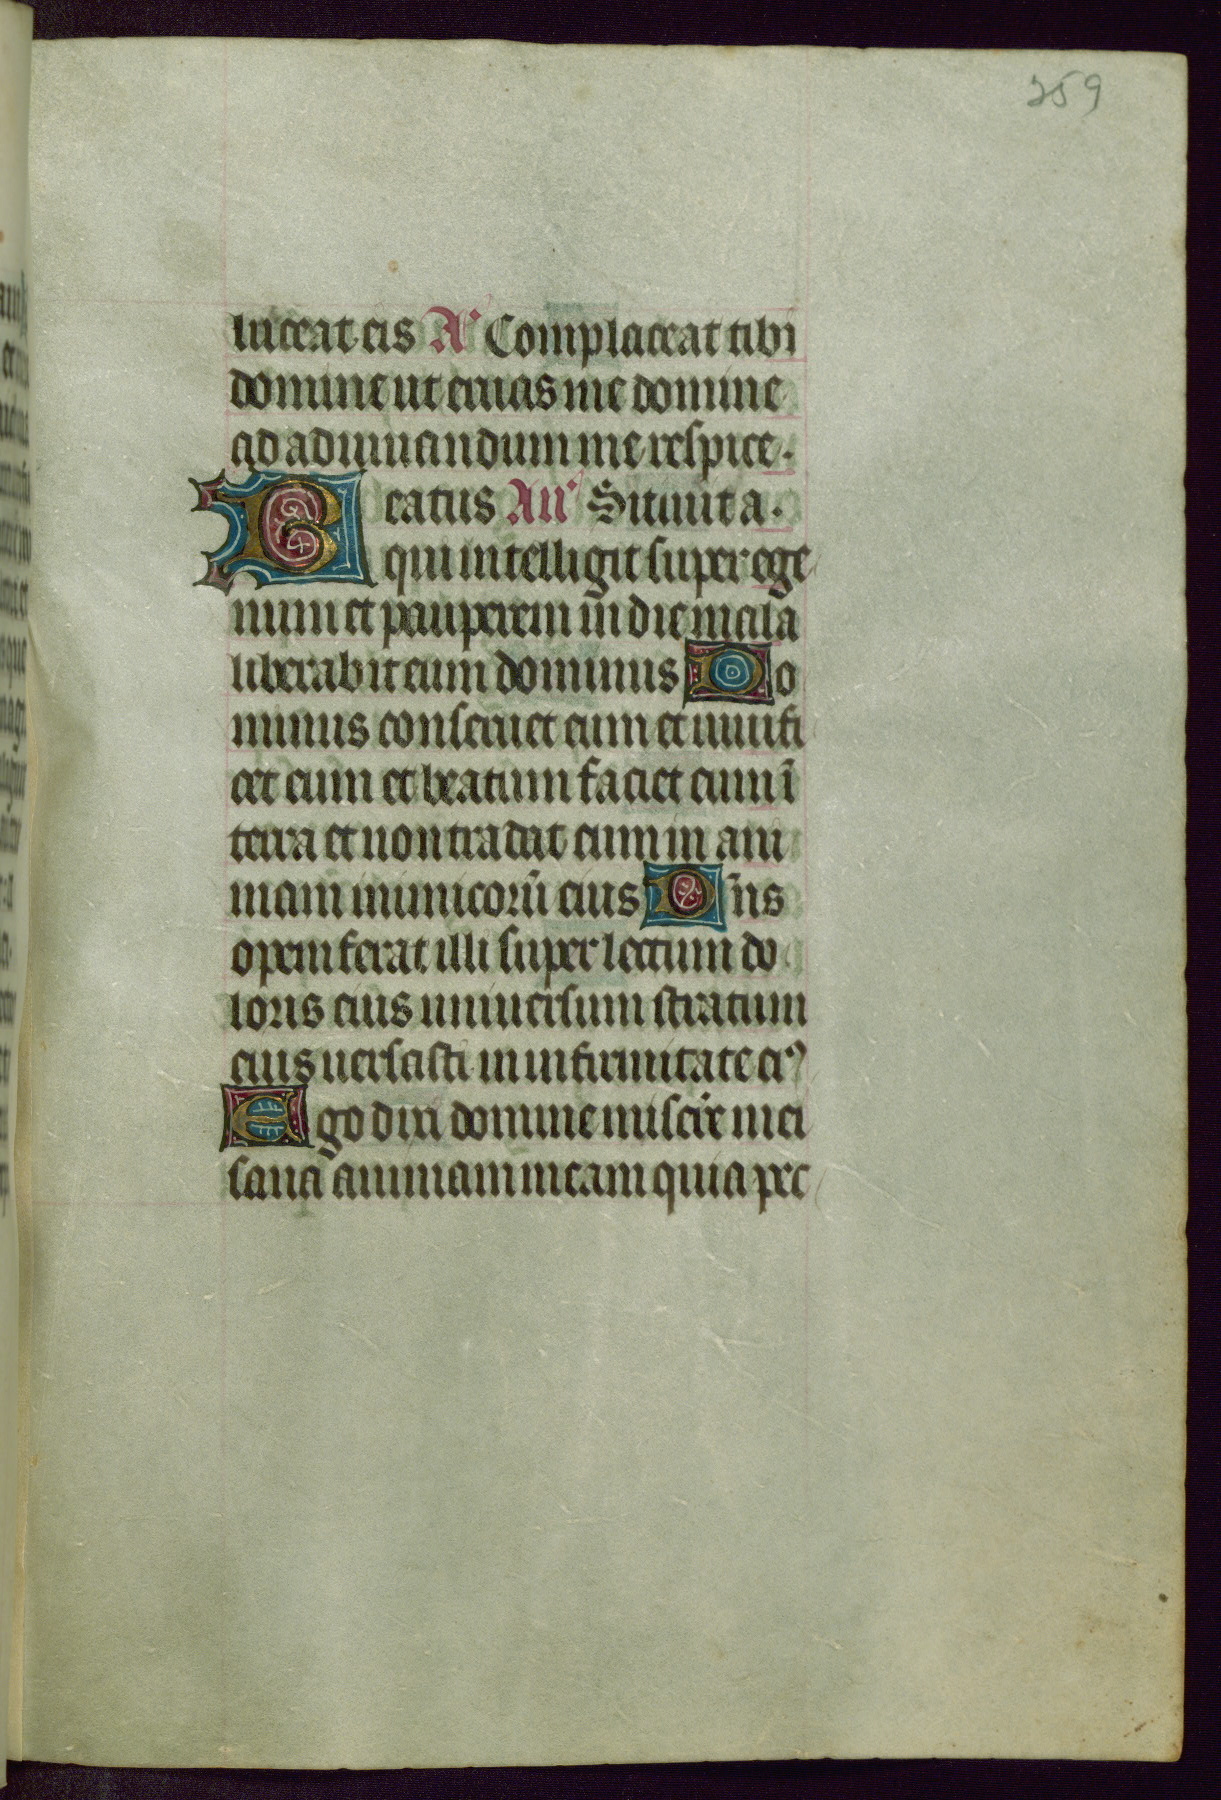 259
luceat eis A' Complaceat tibi
domine ut eruas me domine
ad adiuuandum me respice.
Beatus An' Sitiuit a.
qui intelligit super ege
num et pauperem in die mala
liberabit eum dominus Do
minus conseruet eum et uiuifi
cet eum et beatum faciet eum ī
terra et non tradat eum in ani
mam inimicorū eius Dn̄s
opem ferat illi super lectum do
loris eius uniuersum stratum
eius uersasti in infirmitate eiꝰ
Ego dixi domine miserẻ mei
sana animam meam quia pec